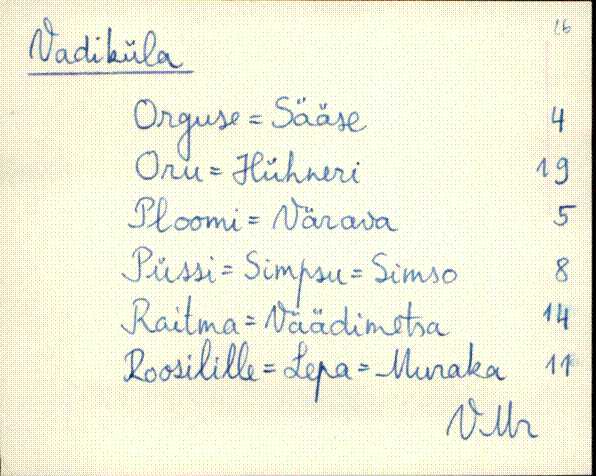 16
Vadiküla
Orguse = Sääse 4
Oru = Hühneri 19
Ploomi = Värava 5
Püssi = Simpsu = Simso 8
Raitma = Väädimetsa 14
Roosilille = Lepa = Muraka 11
VMr